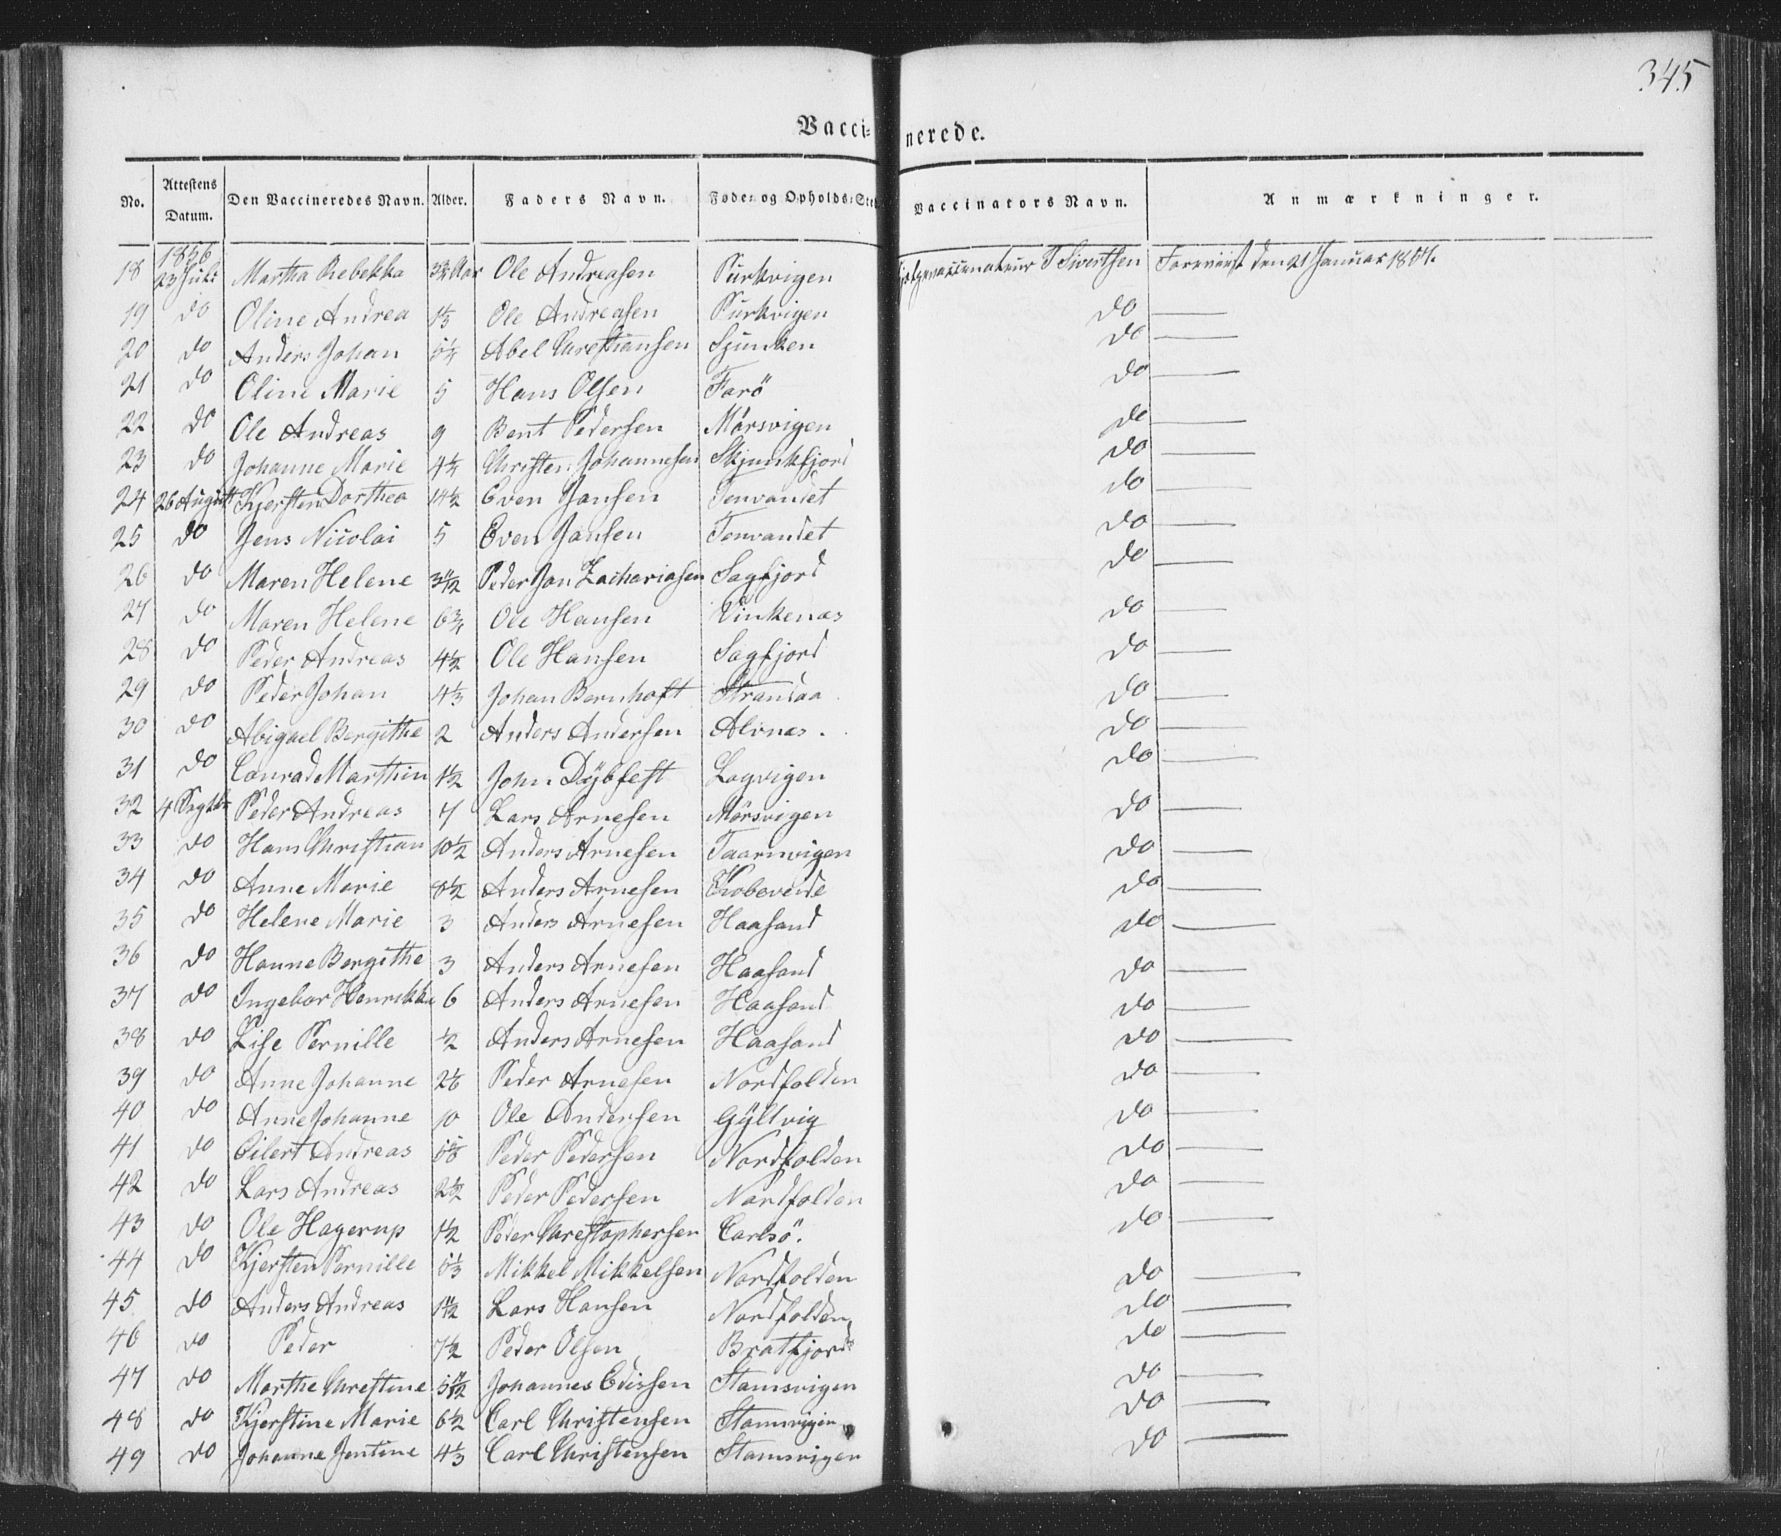 345
Vaccinerede.
No. Attestens Datum. Den Vaccineredes Navn. Alder. Faders Navn. Føde- og Opholds-Sted Vaccinators Navn. Anmærkninger.
1856
18 23 Juli Martha Rebekka 3 3/4 Aar Ole Andreasen Purkvigen S Sivertsen Foreviist den 21 Januar 1857.
19 do Oline Andrea 1 1/3 Ole Andreasen Purkvigen do
20 do Anders Johan Abel Christiansen Sjunken do
21 do Oline Marie 5 Hans Olsen Farö do
22 do Ole Andreas 9 Bent Pedersen Mørsvigen do
23 do Johanne Marie 4 1/4 Christen Johannesen Skjunkfjord do
24 26 August Kjersten Dorthea 14 1/2 Even Jansen Tenvandet do
25 do Jens Nicolai 5 Even Jansen Tenvandet do
26 do Maren Helene Peder Jan Zachariasen Sagfjord do
27 do Maren Helene 6 3/4 Ole Hansen Vinkenæs do
28 do Peder Andreas 4 1/2 Ole Hansen Sagfjord do
29 do Peder Johan 4 1/3 Johan Bernhoft Strandaa do
30 do Abigael Bergithe 2 Anders Andersen Alvnes. do
31 do Conrad Marthin 1 1/2 John Dybfest Lagvigen do
32 4 Septbr Peder Andreas 7 Lars Arnesen Mørsvigen do
33 do Hans Christian 10 1/2 Anders Arnesen Taarnvigen do
34 do Anne Marie 8 1/2 Anders Arnesen Kobbeveide do
35 do Helene Marie 3 Anders Arnesen Haasand do
36 do Hanne Bergithe 3 Anders Arnesen Haasand do
37 do Ingebor Henrikke 6 Anders Arnesen Haasand do
38 do Lise Pernille 1/2 Anders Arnesen Haasand do
39 do Anne Johanne 2 1/6 Peder Arnesen Nordfolden do
40 do Anne Johanne 10 Ole Andersen Gyltvig do
41 do Eilert Andreas Peder Pedersen Nordfolden do
42 do Lars Andreas 2 1/2 Peder Pedersen Nordfolden do
43 do Ole Hagerup 1 1/2 Peder Christophersen Carlsö. do
44 do Kjersten Pernille Mikkel Mikkelsen Nordfolden do
45 do Anders Andreas Lars Hansen Nordfolden do
46 do Peder 7 1/2 Peder Olsen Bratfjord do
47 do Marthe Christine Johannes Edissen Stamsvigen do
48 do Kjerstine Marie 6 1/2 Carl Christensen Stamsvigen do
49 do Johanne Jentine 4 1/3 Carl Christensen Stamsvigen do